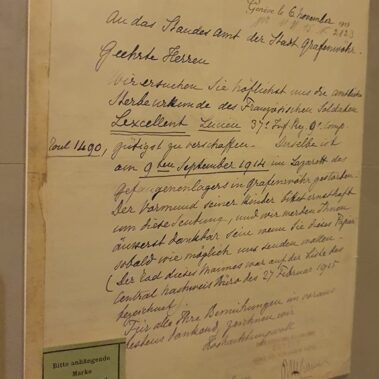 Genève le 6 November
An das Standes amt der Stadt Grafenwöhr.
Geehrte Herren
Wir ersuchen Sie höflichst uns die amtliche
Sterbeurkunde des Französischen Soldaten
Lexcellent Lucien 37e Inf Reg. 9e Comp.
1490, gütigst zu verschaffen. Derselbe ist
am 9ten September 1914 im Lazarett des
gefangenenlagers in Grafenwöhr gestorben.
Der Vormund seiner Kinder bittet ernsthaft
um diese Sendung, und wir werden Ihnen
äusserst dankbar sein wenn Sie dieses Papier
sobald wie möglich uns senden wollen.
(Der Tod dieses Mannes war auf der Liste des
Central Nachweis Büro des 27 Februar 1915
bezeichnet.)
Für alle Ihre Bemühungen im voraus
bestens dankend, zeichnen wir
Hochachtungsvoll
Bitte anhängende
Marke